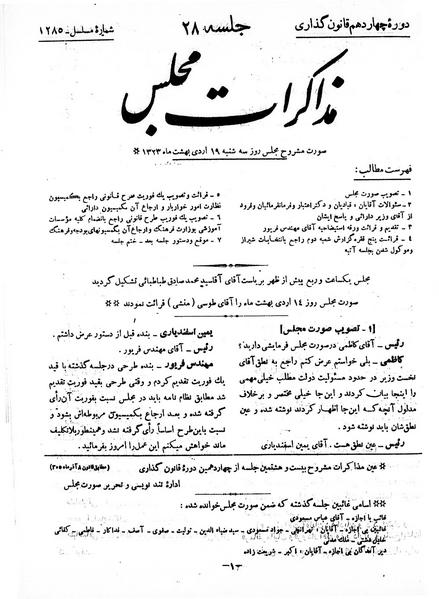 دورهٔ چهاردهم قانون گذاری
جلسه ۲۸
شمارهٔ مسلسل - ۱۲۸۵
مذاکرات مجلس
صورت مشروح مجلس روز سه شنبه ۱۹ اردی بهشت ماه ۱۳۲۳ *
فهرست مطالب :
۱ - تصویب صورت مجلس
۲ - سئوالات آقایان : قبادیان و دکتر اعتبار و فرمانفرمائیان وفرود
از آقای وزیر دارائی و پاسخ ایشان
۳ - تقدیم و قرائت ورقه استیضاحیه آقای مهندس فریور
۴ - قرائت پنج فقره گزارش شعبه دوم راجع بانتخابات شیراز
وموکول شدن بجلسه آتیه
۵ - قرائت و تصویب یك فوریت طرح قانونی راجع بکمیسیون
نظارت امور خواربار و ارجاع آن بکمیسیون دارائی
۶ - تصویب یك فوریت طرح قانونی راجع بانضمام کلیه مؤسسات
آموزشی بوزارت فرهنگ وارجاع آن بکمیسیونهای بودجه وفرهنگ
۷ - موقع ودستور جلسه بعد - ختم جلسه
مجلس یکساعت و ربع پیش از ظهر بریاست آقای آقاسید محمد صادق طباطبائی تشکیل گردید
صورت مجلس روز ۱۴ اردی بهشت ماه را آقای طوسی (منشی) قرائت نمودند *
[۱ - تصویب صورت مجلس]
رئیس - آقای کاظمی درصورت مجلس فرمایشی دارید؟
کاظمی - بلی خواستم عرض کنم راجع به نطق آقای
نخست وزیر در حدود مسئولیت دولت مطلب خیلی مهمی
را اینجا بیان کردند و این جا خیلی مختصر و برخلاف
مدلول آنچه که این جا اظهار کردند نوشته شده و عین
نطق شان باید نوشته شود .
رئیس - عین نطق هست . آقای یمین اسفندیاری
یمین اسفندیاری - بنده قبل از دستور عرض داشتم .
رئیس - آقای مهندس فریور .
مهندس فریور - بنده طرحی درجلسه گذشته با قید
یك فوریت تقدیم کردم و وقتی طرحی بقید فوریت تقدیم
شد مطابق نظام نامه باید در مجلس نسبت بفوریت آن رأی
گرفته شده و بعد ارجاع بکمیسیون مربوطه اش بشود و
نسبت باین طرح اساساً رأی گرفته نشد و همینطور بلاتکلیف
ماند خواهش میکنم این عمل را امروز بفرمائید .
* عین مذاکرات مشروح بیست و هشتمین جلسه از چهاردهمین دورهٔ قانون گذاری
اداره تند نویسی و تحریر صورت مجلس
* اسامی غائبین جلسه گذشته که ضمن صورت مجلس خوانده شده :
غائب با اجازه - آقای عباس مسعودی
غائبین بی اجازه - آقایان : تهرانچی - جواد مسعودی - سید ضیاء الدین - تولیت - صفوی - آصف - فداکار - فاطمی - کفائی
دیر آمدگان بی اجازه - آقایان : اکبر - شریعت زاده
-۱-